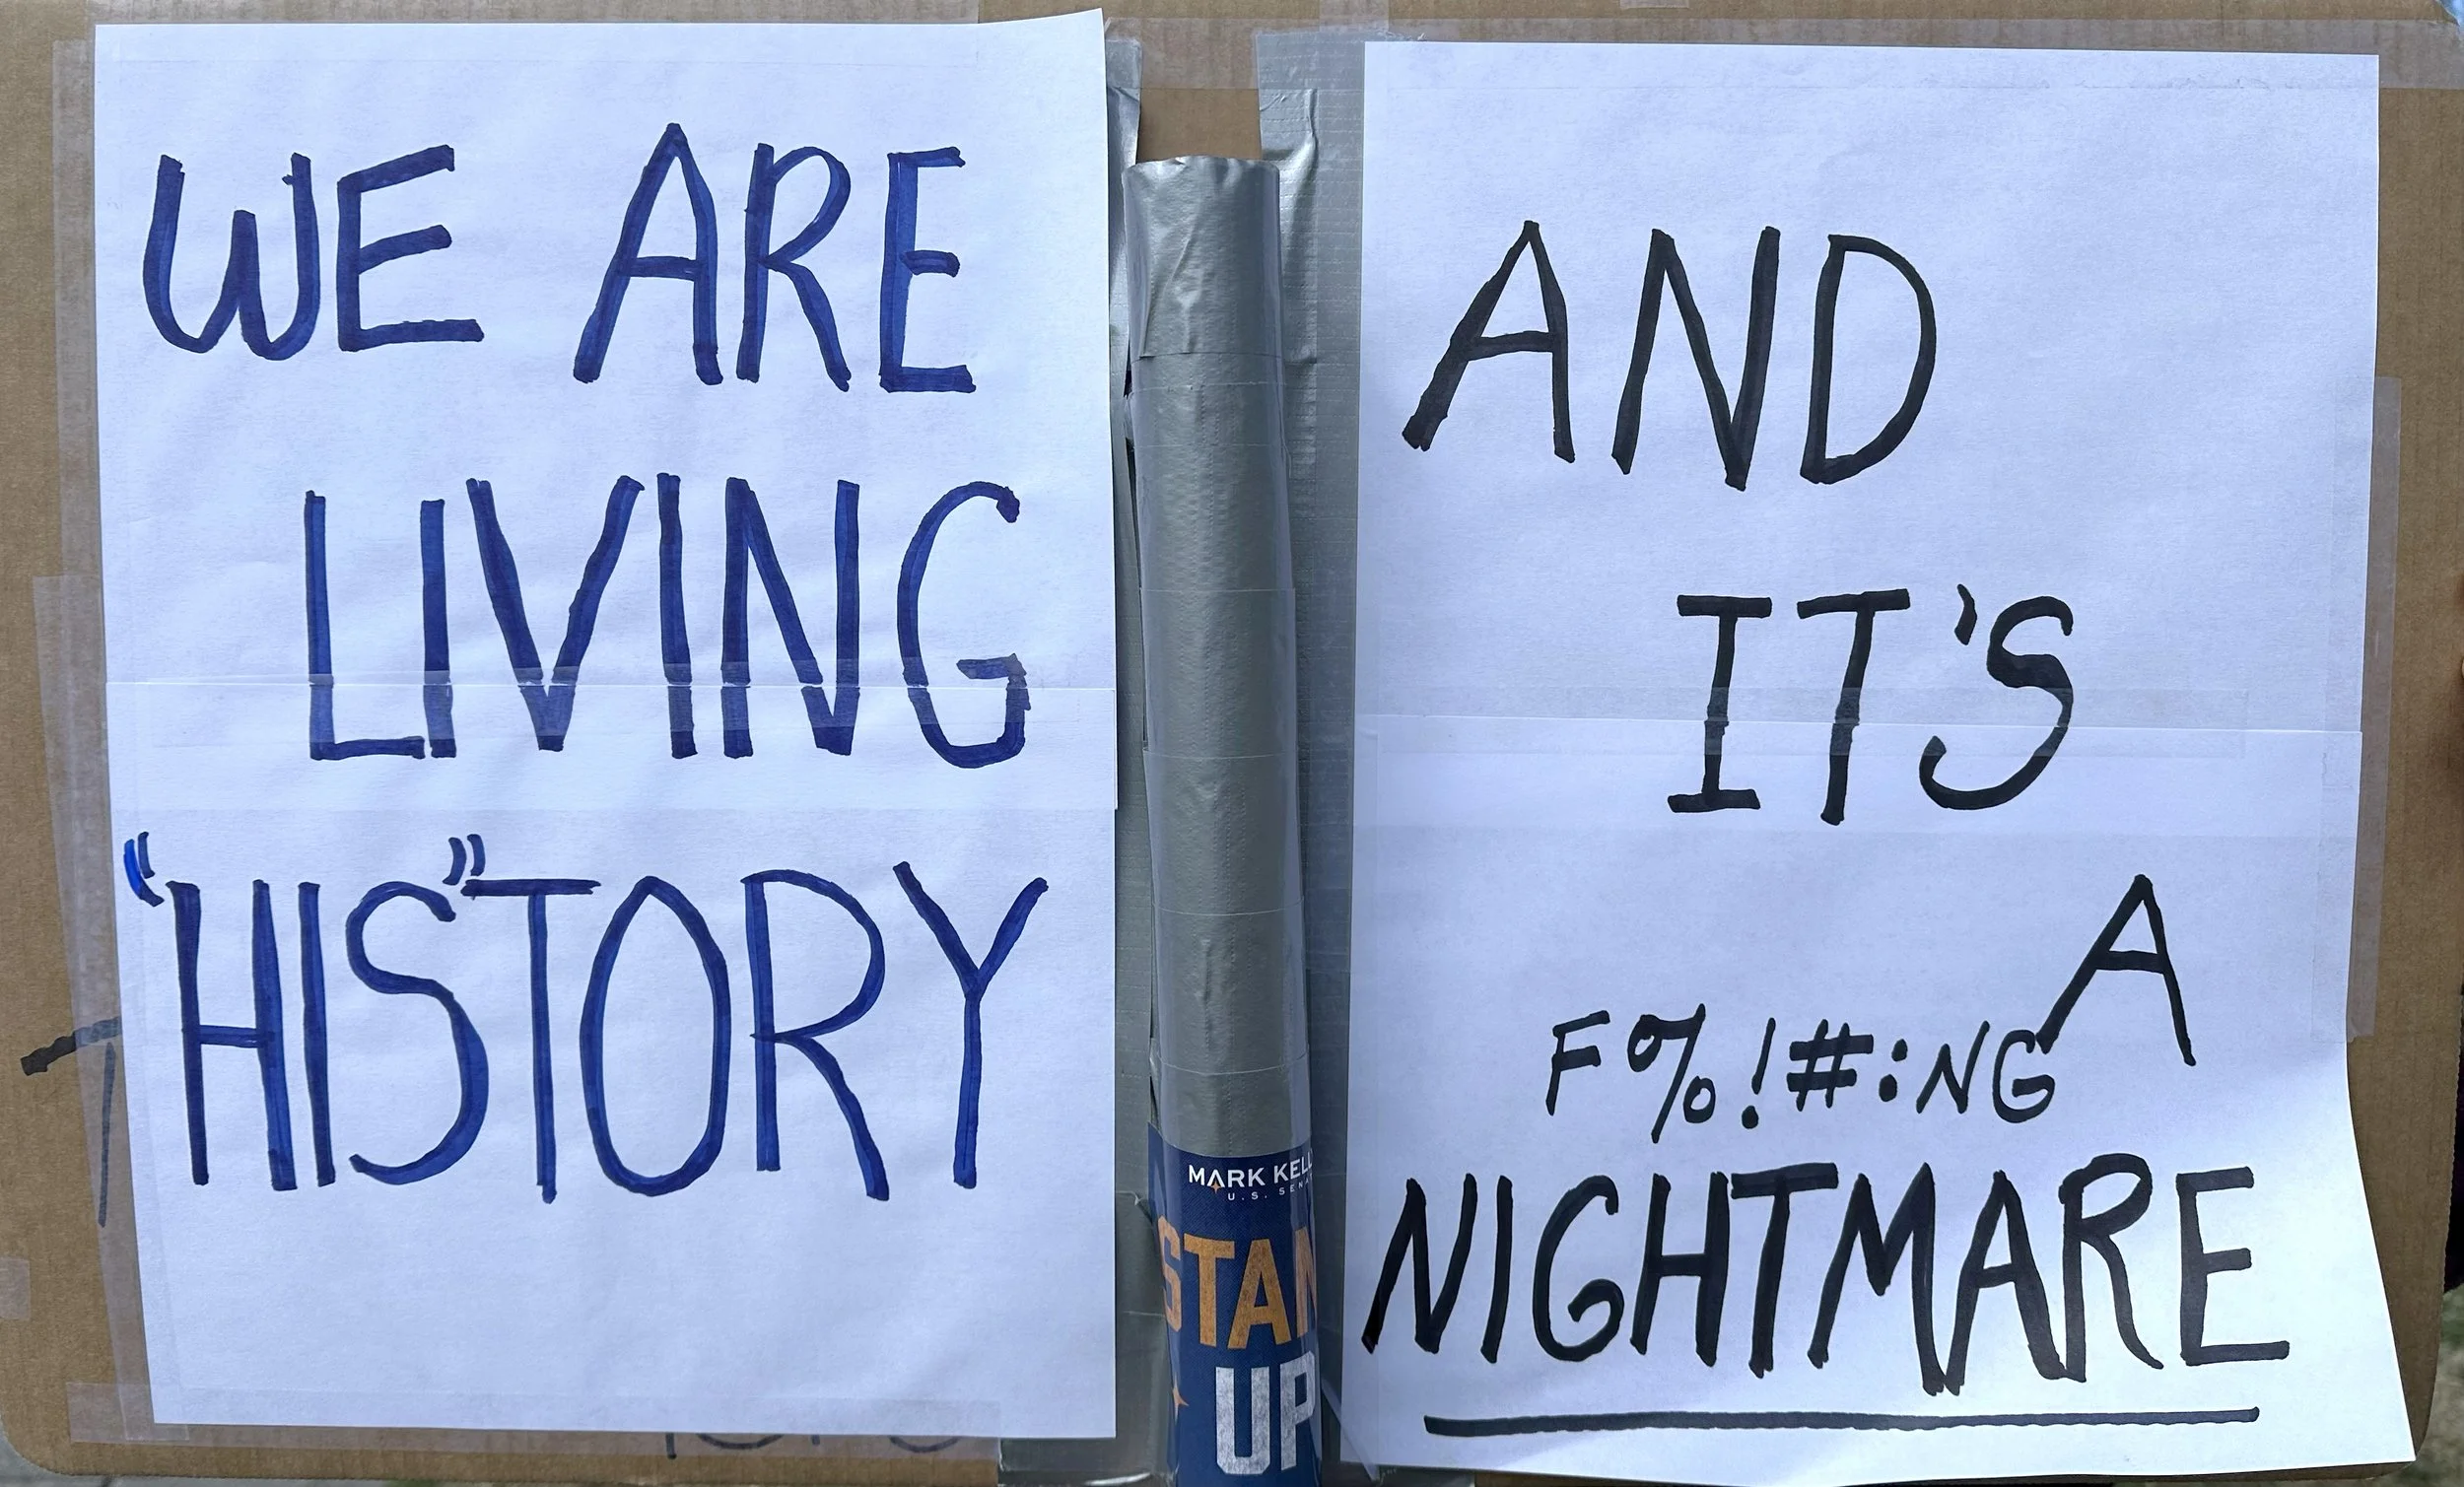 WE ARE
LIVING
“HIS”TORY
MARK KELL
U.S. SENA
STAN
UP
AND
IT'S
A
F%!#:NG
NIGHTMARE